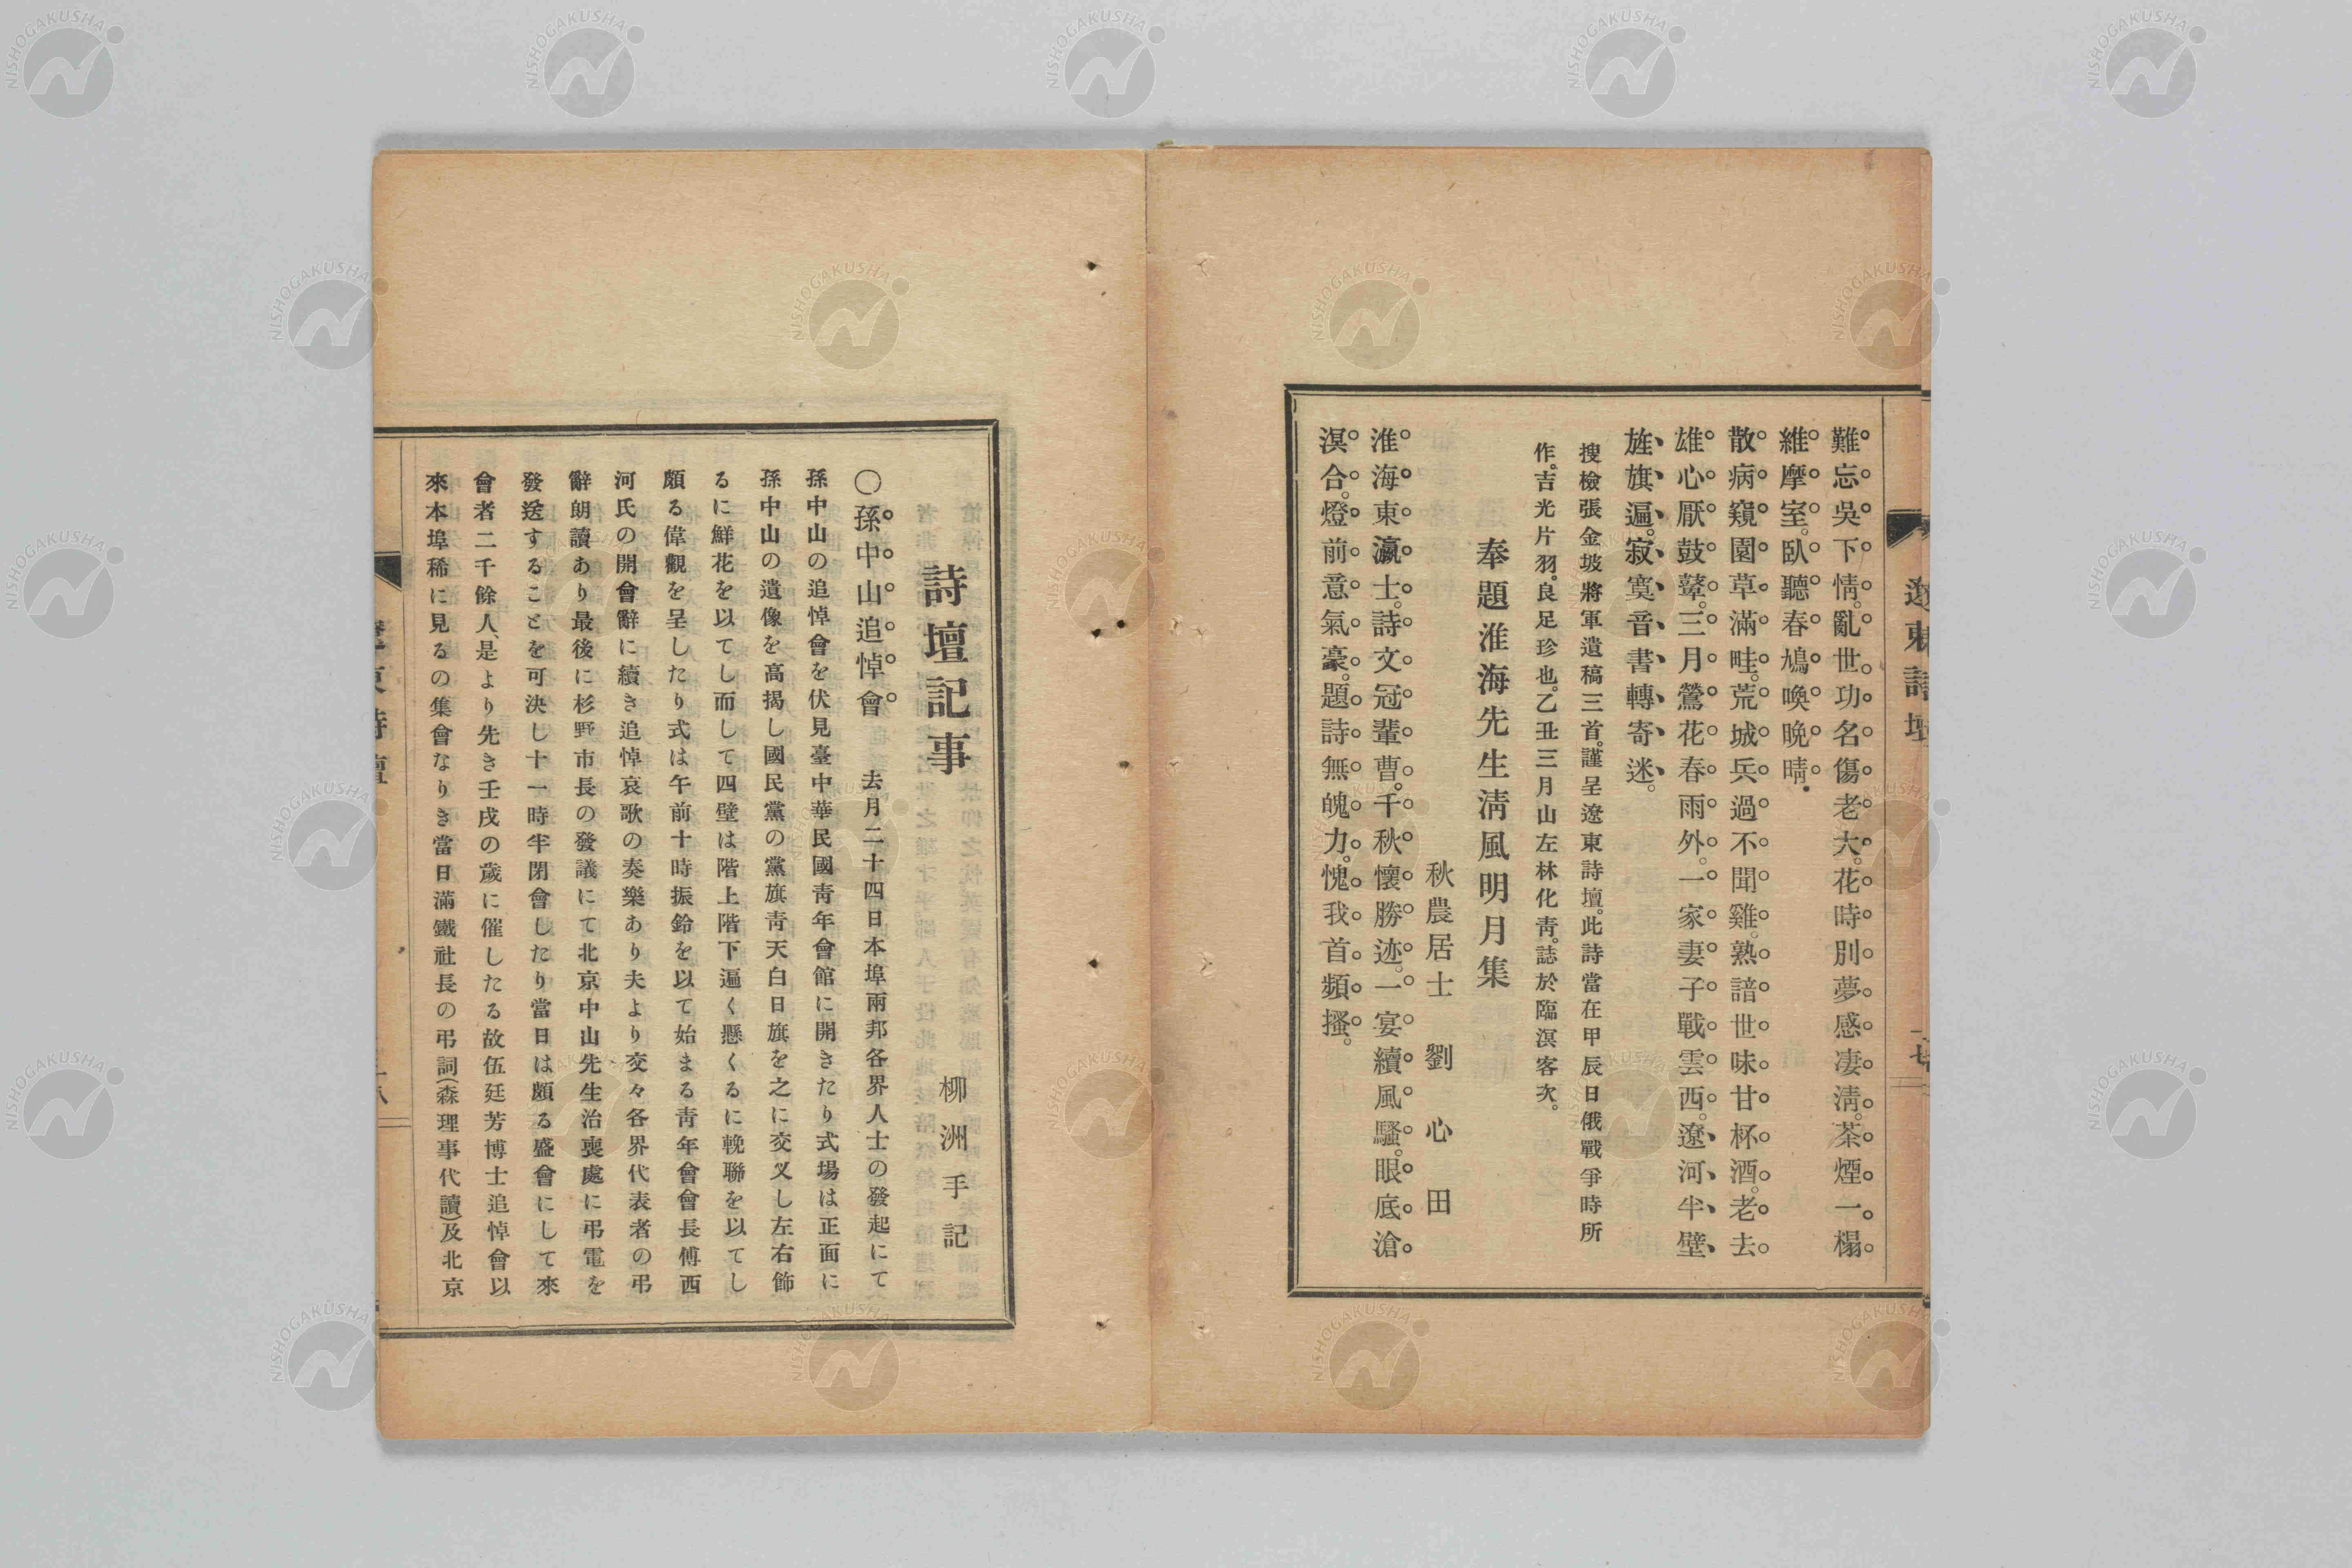 遼東詩壇
難忘吳下情。亂世功名傷老大。花時別夢感凄淸。茶煙一榻
維摩室。臥聽春鳩喚晚晴。
散病窺園草滿畦。荒城兵過不聞雞。熟諳世味甘杯酒。老去
雄心厭鼓鼙。三月鶯花春雨外。一家妻子戰雲西。遼河半壁
旌旗遍。寂寞音書轉寄迷。
搜檢張金坡將軍遺稿三首。謹呈遼東詩壇。此詩當在甲辰日俄戰爭時所
作。吉光片羽。良足珍也。乙丑三月山左林化靑。誌於臨溟客次。
奉題淮海先生淸風明月集
秋農居士 劉心田
淮海東瀛士。詩文冠輩曹。千秋懷勝迹。一宴續風騷。眼底滄
溟合。燈前意氣豪。題詩無魄力。愧我首頻搔。
詩壇記事
柳洲手記
〇孫中山追悼會 去月二十四日本埠兩邦各界人士の發起にて
孫中山の追悼會を伏見臺中華民國靑年會館に開きたり式場は正面に
孫中山の遺像を高揭し國民黨の黨旗靑天白日旗を之に交叉し左右飾
るに鮮花を以てし而して四壁は階上階下遍く懸くるに輓聯を以てし
頗る偉觀を呈したり式は午前十時振鈴を以て始まる靑年會會長傅西
河氏の開會辭に續き追悼哀歌の奏樂あり夫より交々各界代表者の弔
辭朗讀あり最後に杉野市長の發議にて北京中山先生治喪處に弔電を
發送することを可決し十一時半閉會したり當日は頗る盛會にして來
會者二千餘人、是より先き壬戌の歲に催したる故伍廷芳博士追悼會以
來本埠稀に見るの集會なりき當日滿鐵社長の弔詞(森理事代讀)及北京
NISHOGAKUSHA